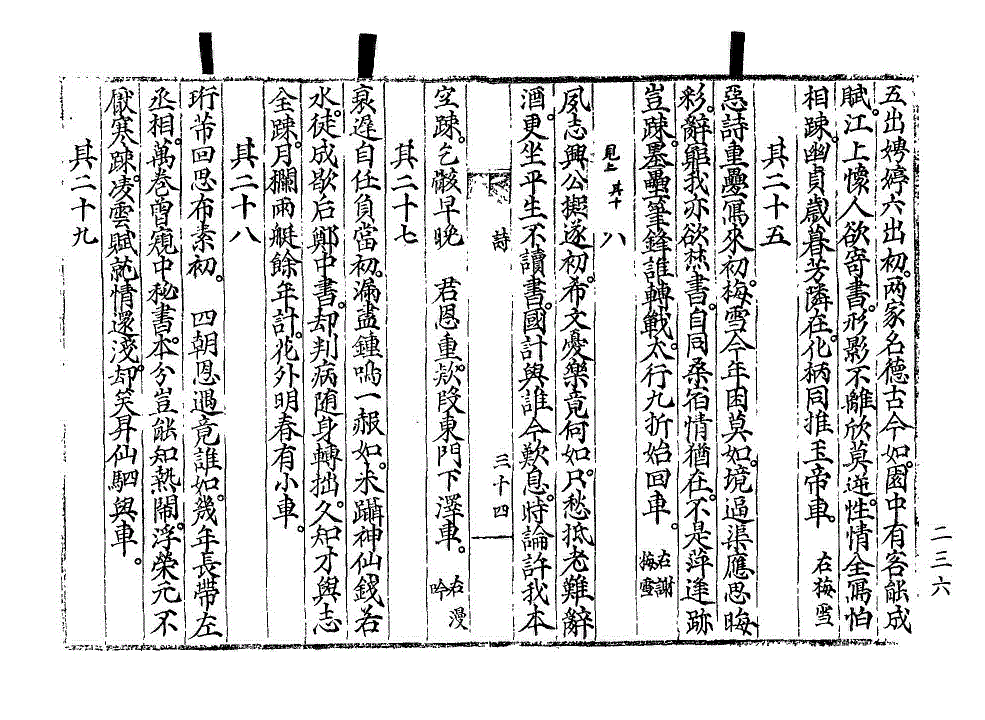 五出娉婷六出初。两家名德古今如。園中有客能成
賦。江上懷人欲寄書。形影不離欣莫逆。性情全寫怕
相踈。幽貞歲暮芳隣在。化柄同推玉帝車。右梅雪
其二十五
惡詩重疊寫來初。梅雪今年困莫如。境過渠應思晦
彩。辭窮我亦欲焚書。自同桑宿情猶在。不是萍逢跡
豈踈。墨壘筆鋒誰轉戰。太行九折始回車。右謝梅雪
見上其十八
夙志興公擬遂初。希文憂樂竟何如。只愁抵老難辭
酒。更坐平生不讀書。國計與誰今歎息。時論許我本
詩
三十四
空踈。乞骸早晚 君恩重。款段東門下澤車。右漫吟
其二十七
衰遲自任負當初。漏盡鍾鳴一報如。未躡神仙錢若
水。徒成歇后鄭中書。却判病随身轉拙。久知才與志
全踈。月欄雨艇餘年計。花外明春有小車。
其二十八
珩芾回思布素初。 四朝恩遇竟誰如。幾年長帶左
丞相。萬卷曾窺中秘書。本分豈能知熱鬧。浮榮元不
厭寒踈。凌雲賦就情還淺。却笑昇仙駟與車。
其二十九
二三六